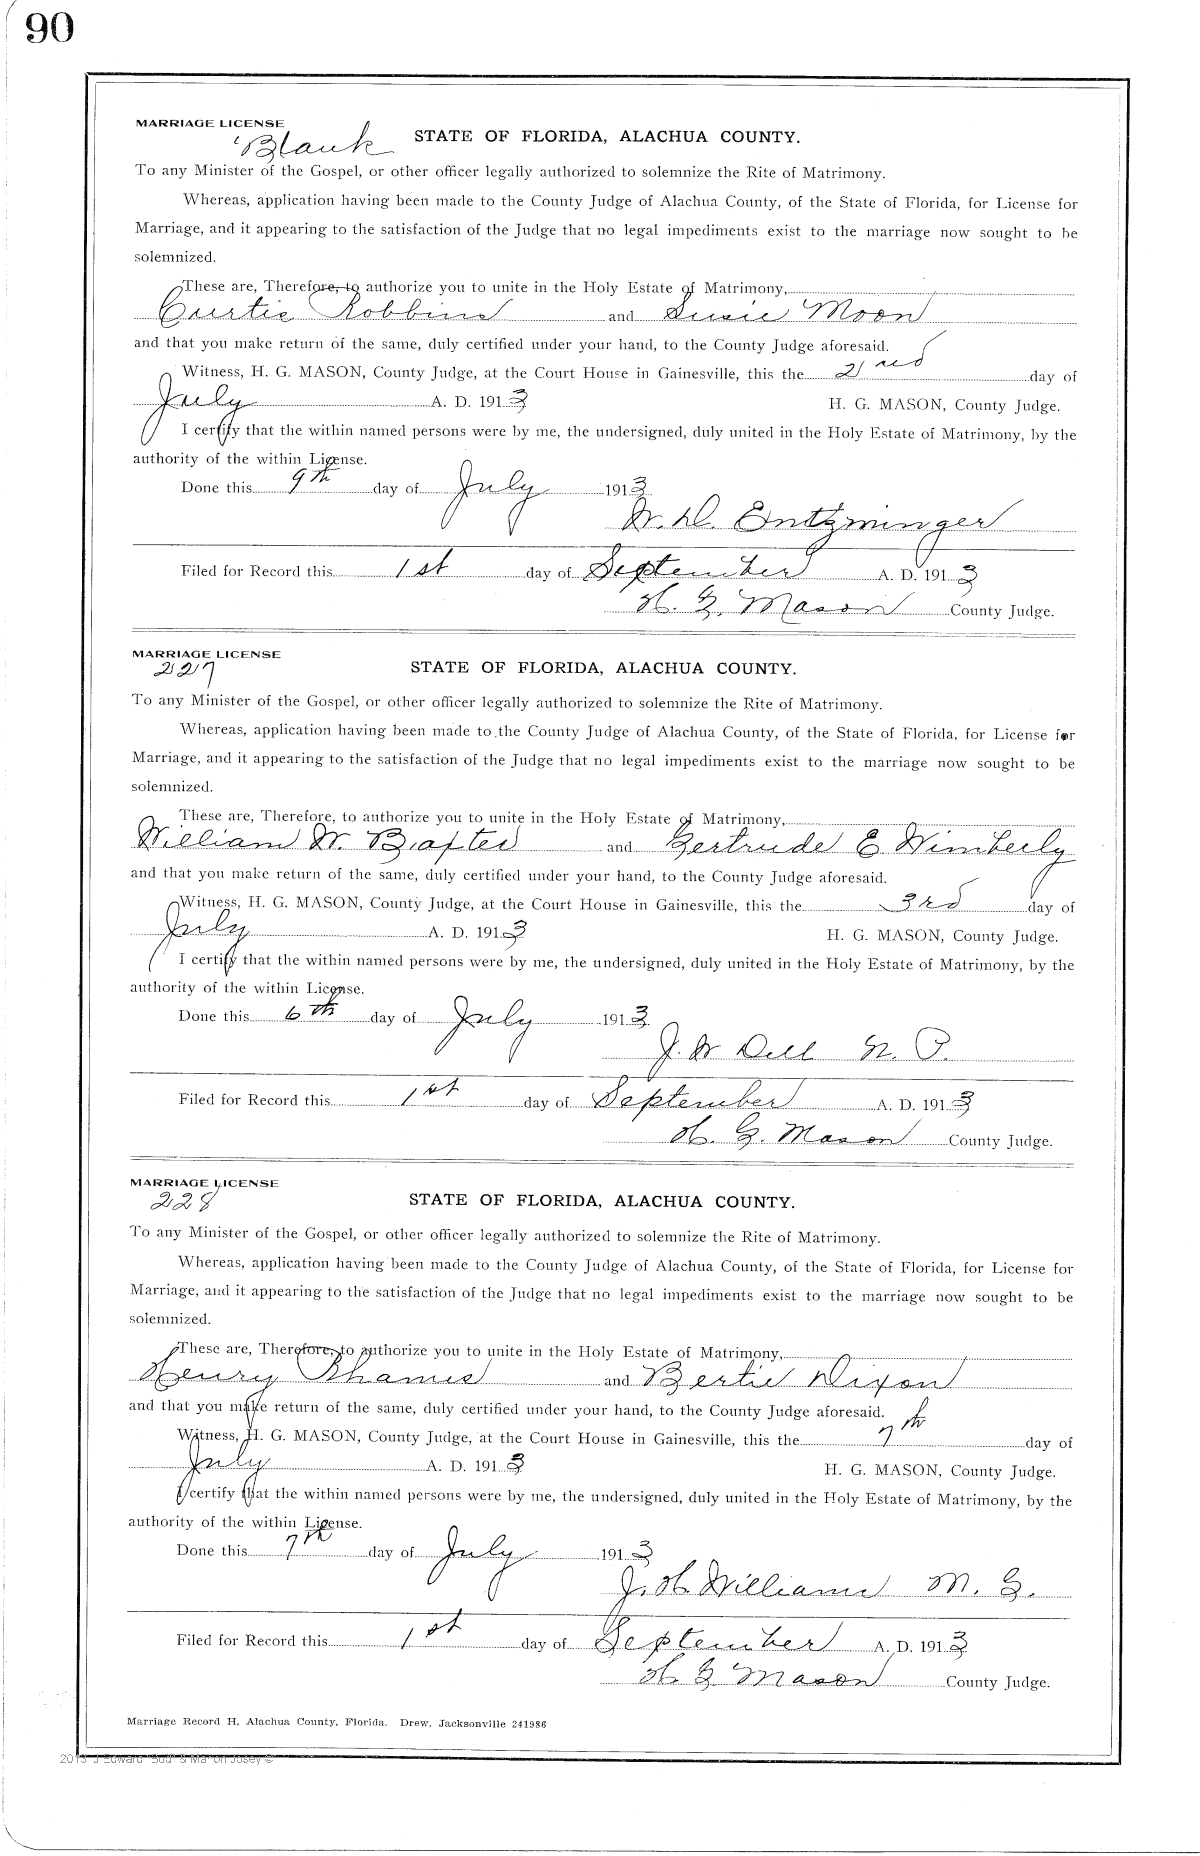 90
MARRIAGE LICENSE
Blank
STATE OF FLORIDA, ALACHUA COUNTY.
To any Minister of the Gospel, or other officer legally authorized to solemnize the Rite of Matrimony.
Whereas, application having been made to the County Judge of Alachua County, of the State of Florida, for License for
Marriage, and it appearing to the satisfaction of the Judge that no legal impediments exist to the marriage now sought to be
solemnized.
These are, Therefore, to authorize you to unite in the Holy Estate of Matrimony,
Curtis Robbins and Susie Moon
and that you make return of the same, duly certified under your hand, to the County Judge aforesaid.
Witness, H. G. MASON, County Judge, at the Court House in Gainesville, this the 2nd day of
July A. D. 1913 H. G. MASON, County Judge.
I certify that the within named persons were by me, the undersigned, duly united in the Holy Estate of Matrimony, by the
authority of the within License.
Done this 9th day of July 1913
W. D. Entzminger
Filed for Record this 1st day of September A. D. 1913
H. G. Mason County Judge.
MARRIAGE LICENSE
227
STATE OF FLORIDA, ALACHUA COUNTY.
To any Minister of the Gospel, or other officer legally authorized to solemnize the Rite of Matrimony.
Whereas, application having been made to the County Judge of Alachua County, of the State of Florida, for License for
Marriage, and it appearing to the satisfaction of the Judge that no legal impediments exist to the marriage now sought to be
solemnized.
These are, Therefore, to authorize you to unite in the Holy Estate of Matrimony,
William W. Baxter and Gertrude E Wimberly
and that you make return of the same, duly certified under your hand, to the County Judge aforesaid.
Witness, H. G. MASON, County Judge, at the Court House in Gainesville, this the 3rd day of
July A. D. 1913 H. G. MASON, County Judge.
I certify that the within named persons were by me, the undersigned, duly united in the Holy Estate of Matrimony, by the
authority of the within License.
Done this 6th day of July 1913
J. W Dell N. P.
Filed for Record this 1st day of September A. D. 1913
H. G. Mason County Judge.
MARRIAGE LICENSE
228
STATE OF FLORIDA, ALACHUA COUNTY.
To any Minister of the Gospel, or other officer legally authorized to solemnize the Rite of Matrimony.
Whereas, application having been made to the County Judge of Alachua County, of the State of Florida, for License for
Marriage, and it appearing to the satisfaction of the Judge that no legal impediments exist to the marriage now sought to be
solemnized.
These are, Therefore, to authorize you to unite in the Holy Estate of Matrimony,
Henry Rhames and Bertie Dixon
and that you make return of the same, duly certified under your hand, to the County Judge aforesaid.
Witness, H. G. MASON, County Judge, at the Court House in Gainesville, this the 7th day of
July A. D. 1913 H. G. MASON, County Judge.
I certify that the within named persons were by me, the undersigned, duly united in the Holy Estate of Matrimony, by the
authority of the within License.
Done this 7th day of July 1913
J. H. Williams M. G.
Filed for Record this 1st day of September A. D. 1913
H G Mason County Judge.
Marriage Record H, Alachua County, Florida. Drew, Jacksonville 241986
J Edward "Bud" & Marion Josey ©